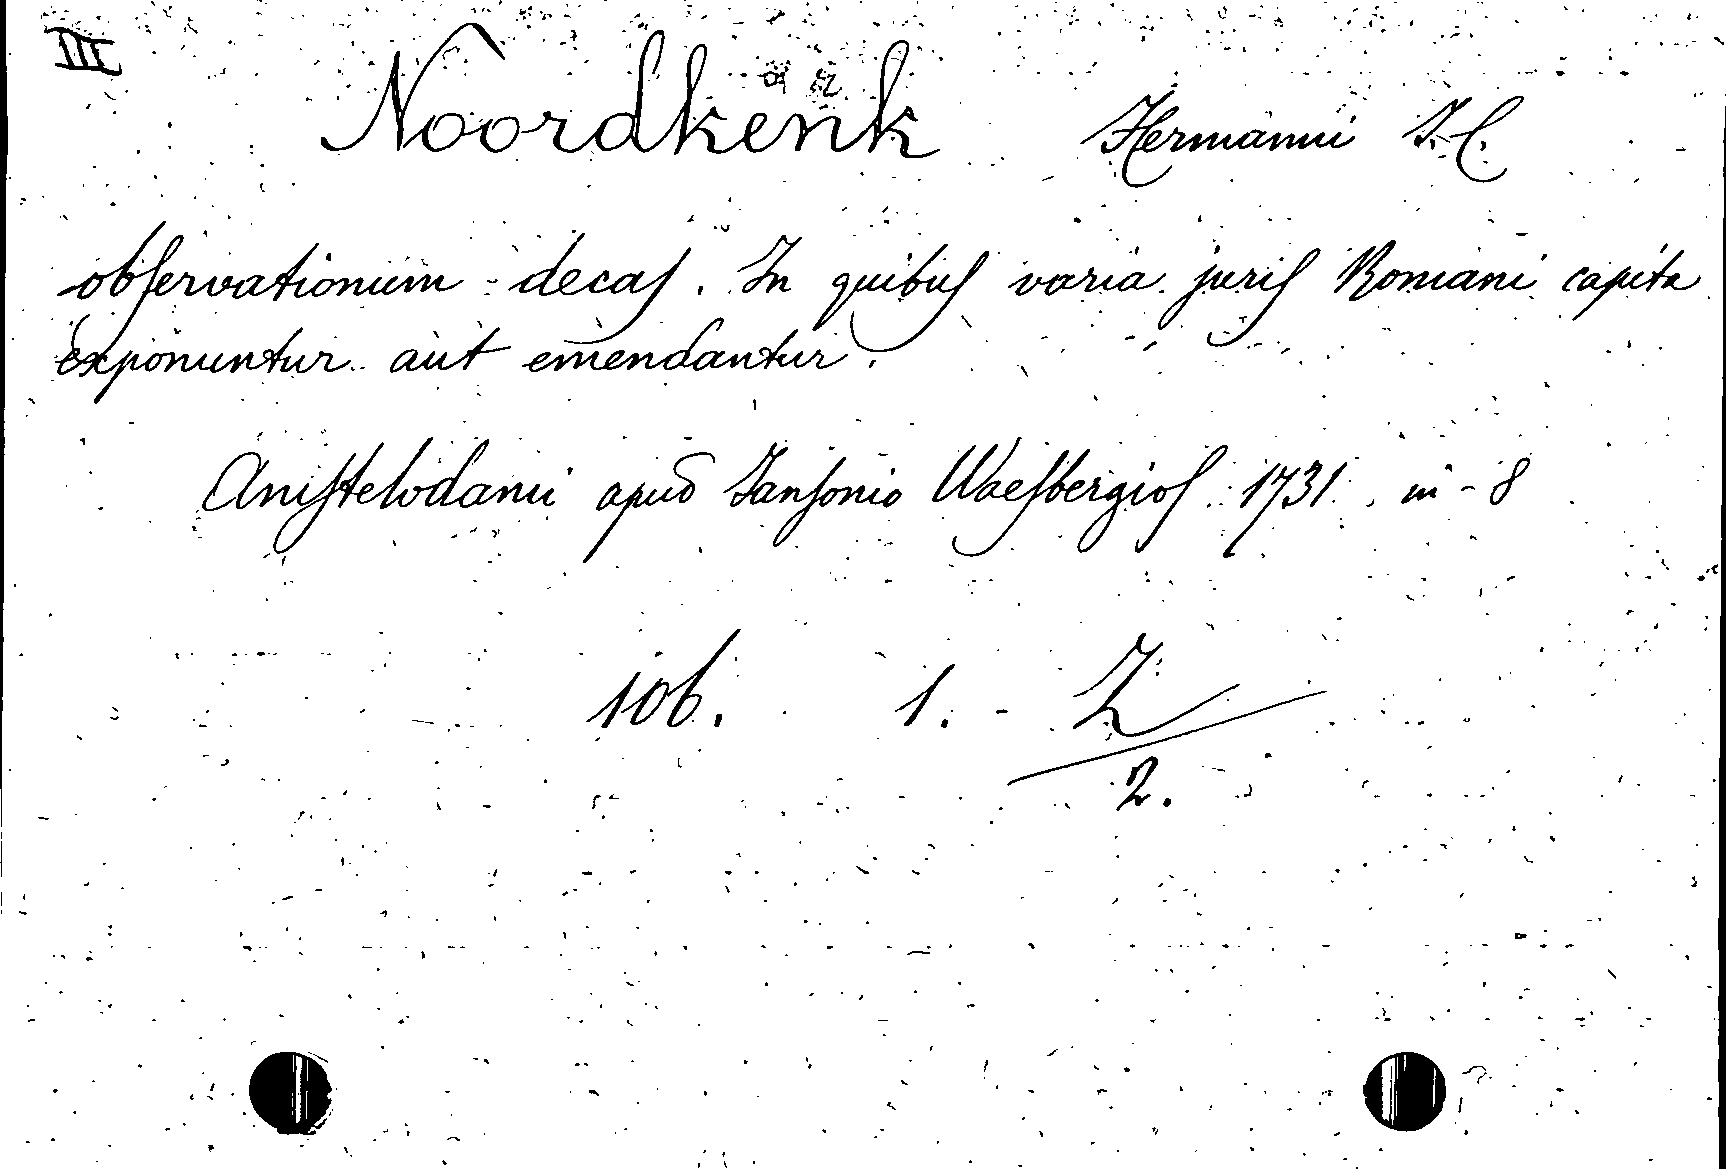 III
Noordkenk Hermanni I.C.
obſervationum decaſ. In quibuſ varia juriſ Romani capita
exponuntur aut emendantur.
Amſtelodami apud Janſonio Waeſbergioſ 1731. in-8
106. 1. Z
2.